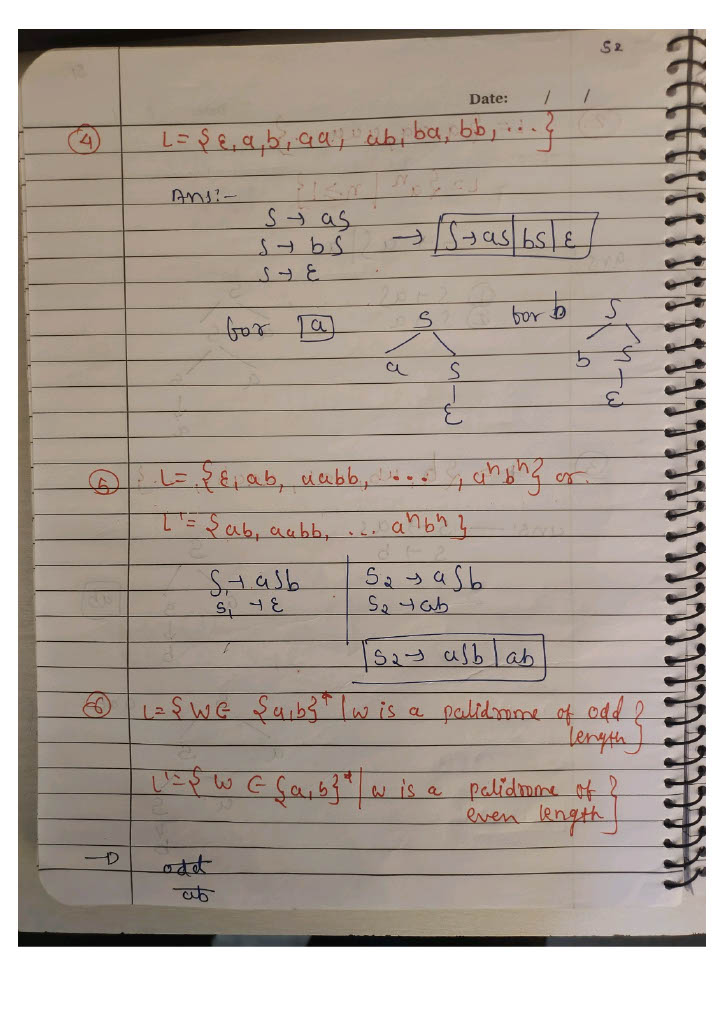 S2
Date: / /
④ L = {ε, a, b, aa, ab, ba, bb, ...}
Ans:-
S → aS
S → bS → S → aS | bS | ε
S → ε
for a S for b S
a S b S
ε ε
⑤ L = {ε, ab, aabb, ... , aⁿbⁿ} or
L' = {ab, aabb, ... aⁿbⁿ}
S₁ → aSb S₂ → aSb
S₁ → ε S₂ → ab
S₂ → aSb | ab
⑥ L = {W ∈ {a,b}* | w is a palidrome of odd length}
L' = {W ∈ {a,b}* | w is a palidrome of even length}
→ odd
ab